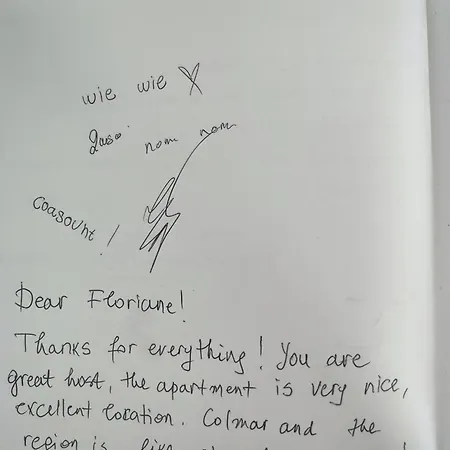 wie wie X
nom nom
coasount!
Dear Floriane!
Thanks for everything! You are
great host, the apartment is very nice,
excellent location. Colmar and the
region is